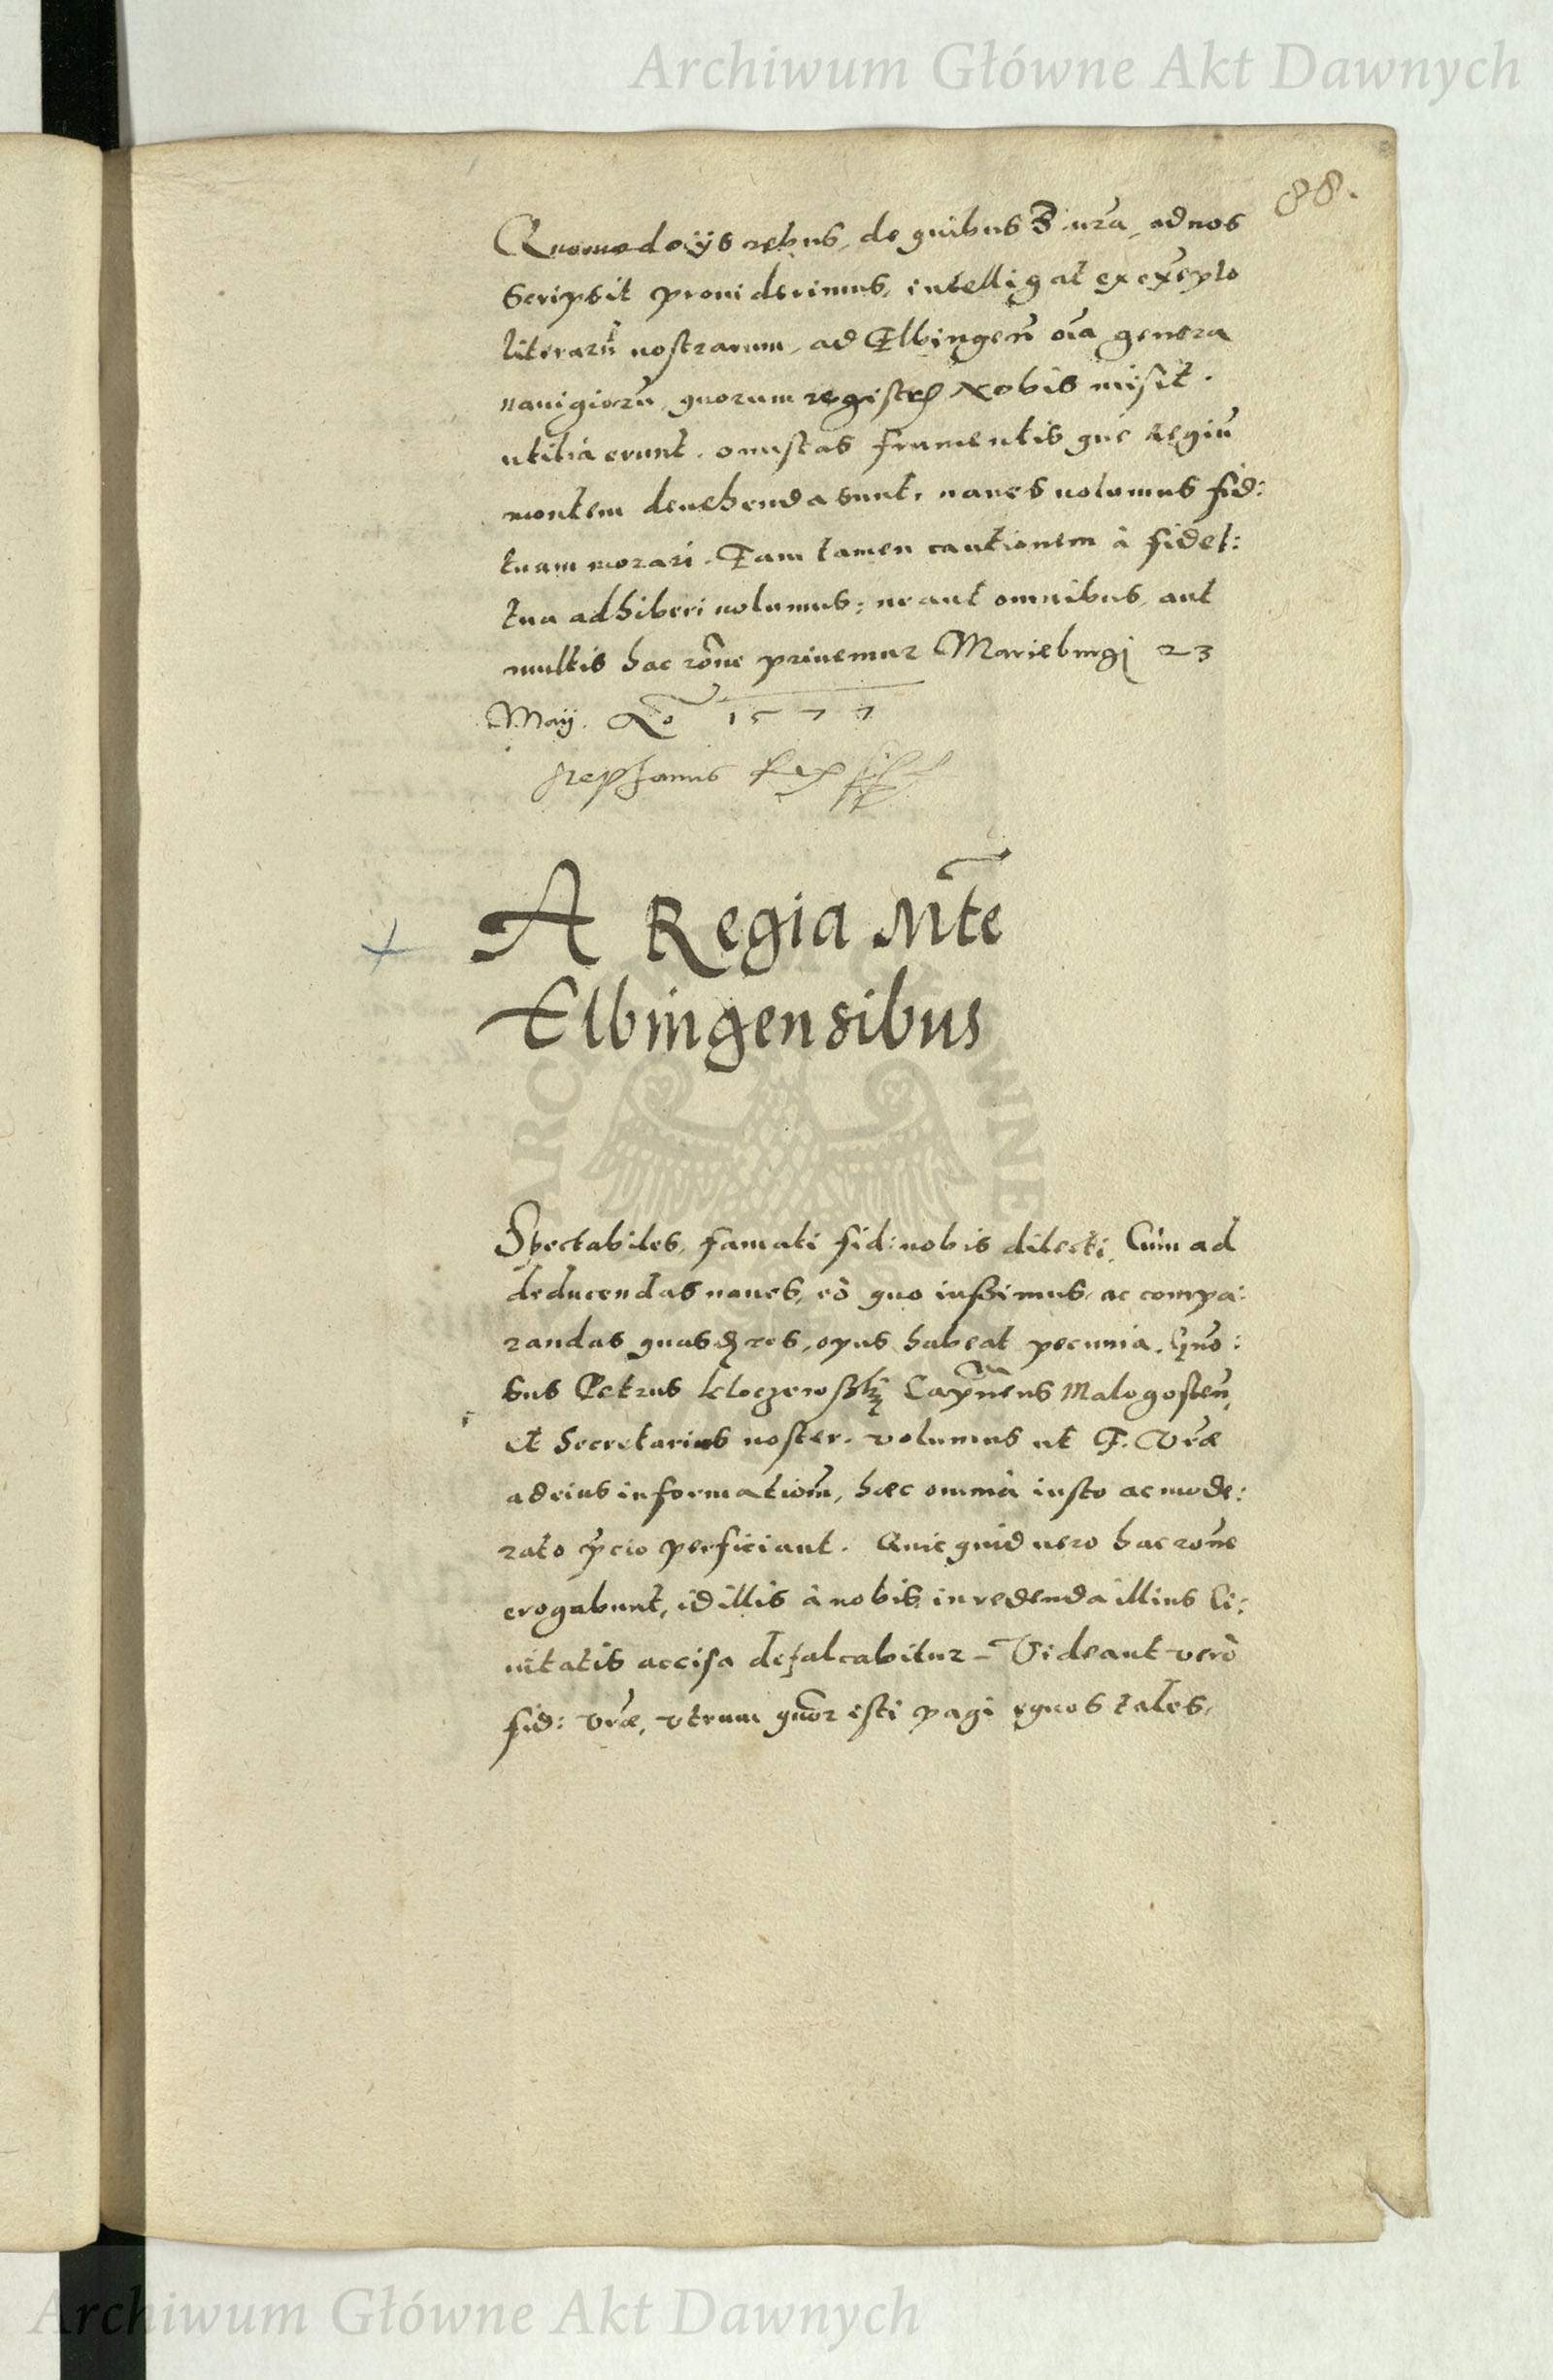 Archiwum Główne Akt Dawnych
88.
Quomodo ijs rebus, de quibus S. ura, ad nos
Scripsit prouiderimus, intelligat ex exẽplo
literarũ nostrarum, ad Elbingeñ oĩa genera
nauigiorũ, quorum registrũ Nobis misit.
utilia erunt. onustas frumentis que Regiũ
montem deuehenda sunt, naues uolumus fid:
tuam morari. Eam tamen cautionem à fidel:
tua adhiberi uolumus: ne aut omnibus, aut
multis hac rõne priuemur Marieburgj 23
Maij. Aõ 1577
Stephanus Rex
A Regia Mte
Elbingensibus
Spectabiles, famati fid: nobis dilecti, Cum ad
deducendas naues, eò quo iussimus, ac compa:
randas quasdã res, opus habeat pecunia, Gño:
sus Petrus Capñeus Malogosteñ,
et Secretarius noster. volumus ut F. Vrae
ad eius informationẽ, haec omnia iusto ac mode:
rato p̃cio perficiant. Quicquid uero hac rone
erogabunt, id illis à nobis in redenda illius Ci:
uitatis accisa defalcabitur – Videant verò
fid: vrae, vtrum quor isti pagi equos tales,
ARCHIWUM GŁÓWNE
Archiwum Główne Akt Dawnych